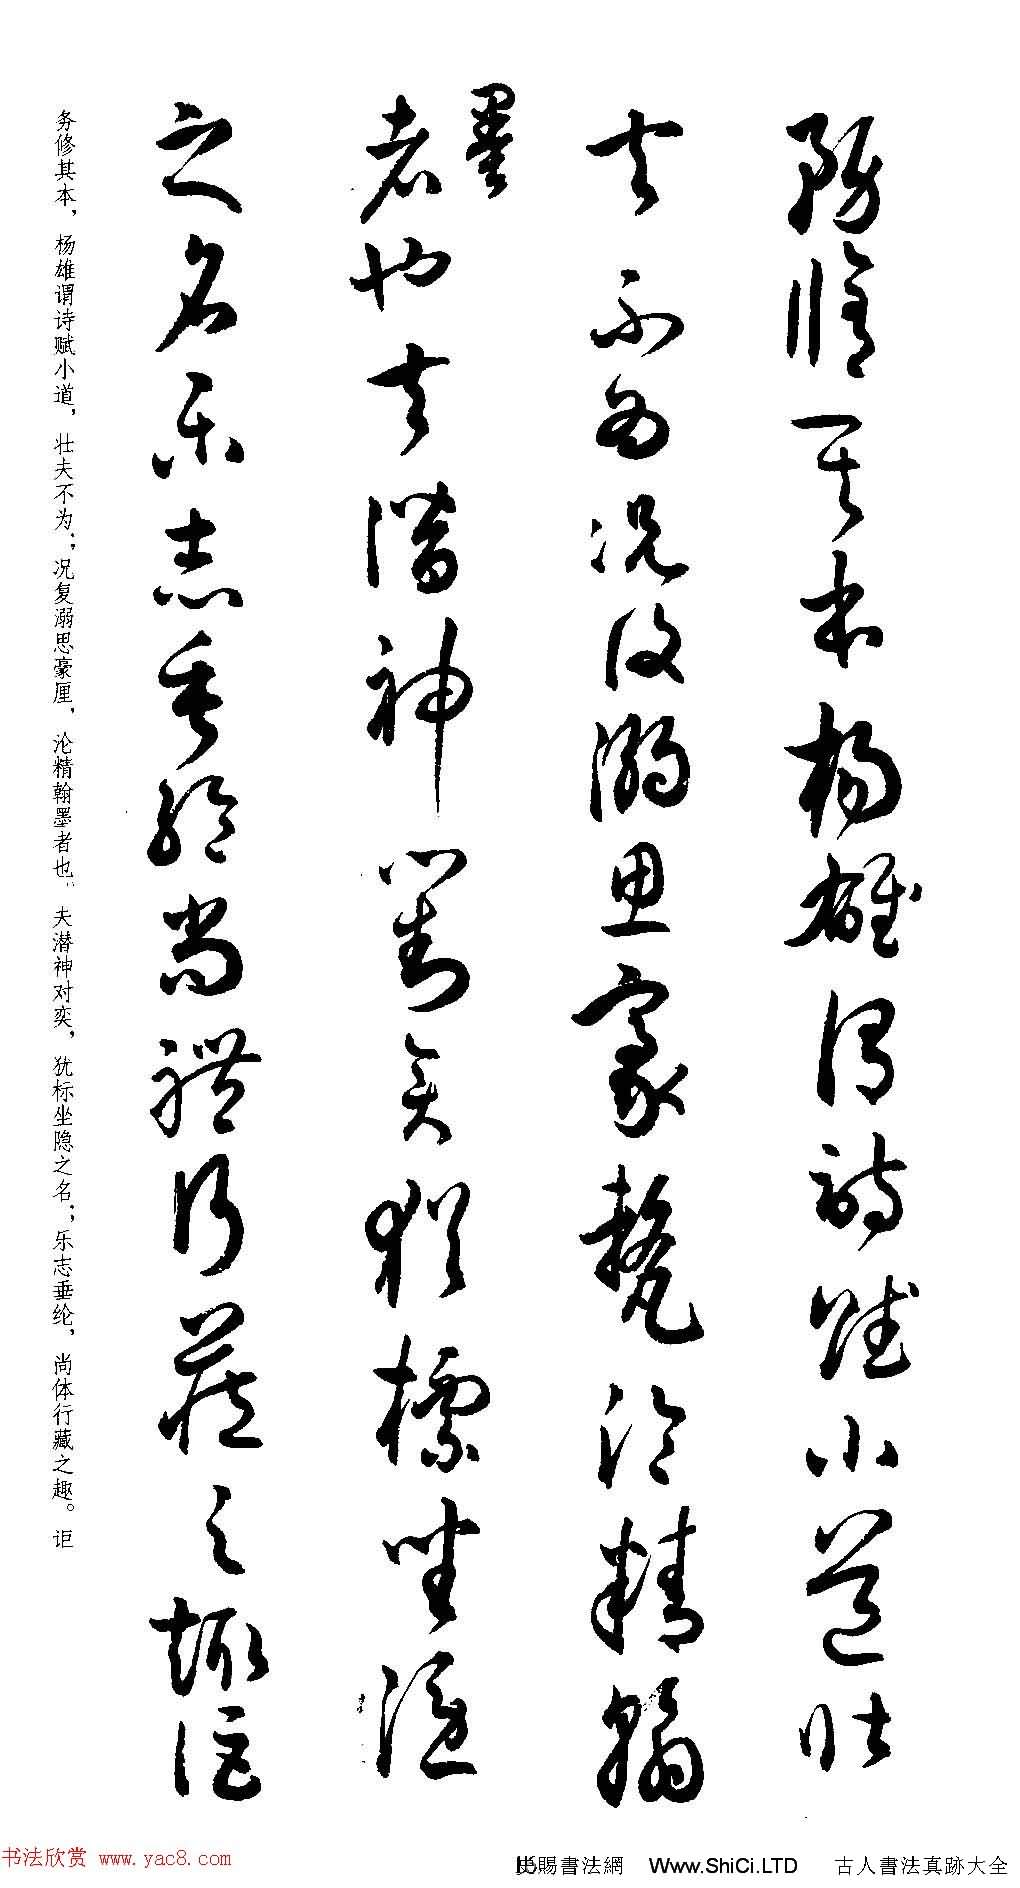 務脩其本楊雄謂詩賦小道壯
夫不為況復溺思豪氂淪精翰
墨
者也夫潛神對奕猶標坐隱
之名樂志垂綸尚體行藏之趣詎
务修其本，杨雄谓诗赋小道，壮夫不为；况复溺思豪厘，沦精翰墨者也。夫潜神对奕，犹标坐隐之名；乐志垂纶，尚体行藏之趣。讵
书法欣赏 www.yac8.com
賜書法網 Www.ShiCi.LTD 古人書法真跡大全